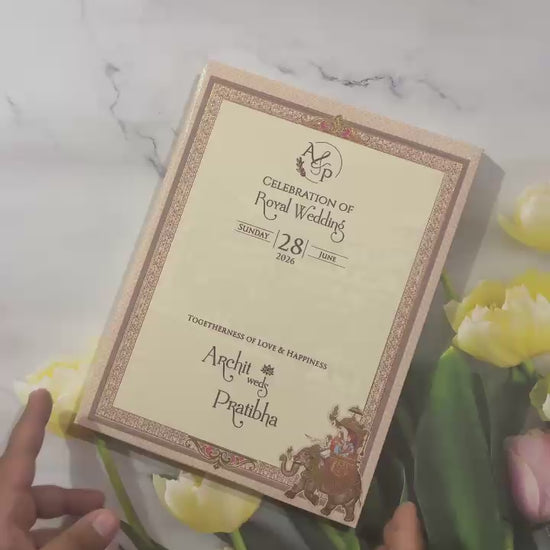 A & P
CELEBRATION OF
Royal Wedding
SUNDAY 28 JUNE
2026
TOGETHERNESS OF LOVE & HAPPINESS
Archit
weds
Pratibha